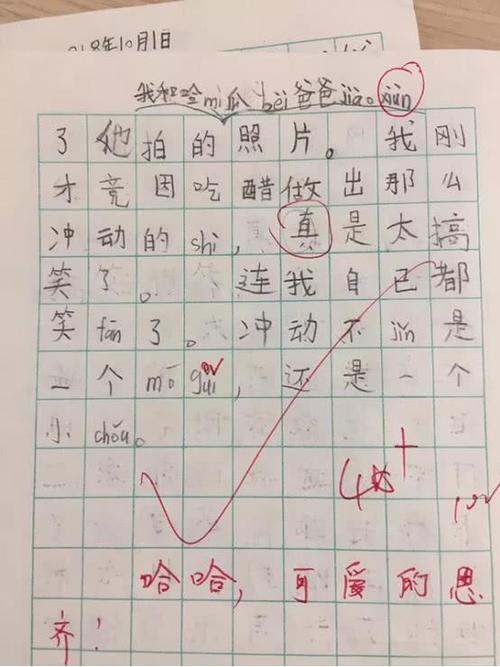 018年10月1日
我和哈mi瓜bèi爸爸jiao。xùn
了他拍的照片。 我刚
才竟因吃醋做出那么
冲动的shi,真是太搞
笑了。 连我自己都
笑fān了。冲动不jǐn是
一个mō guǐ,还是一个
小chǒu。
哈哈,可爱的思
齐!